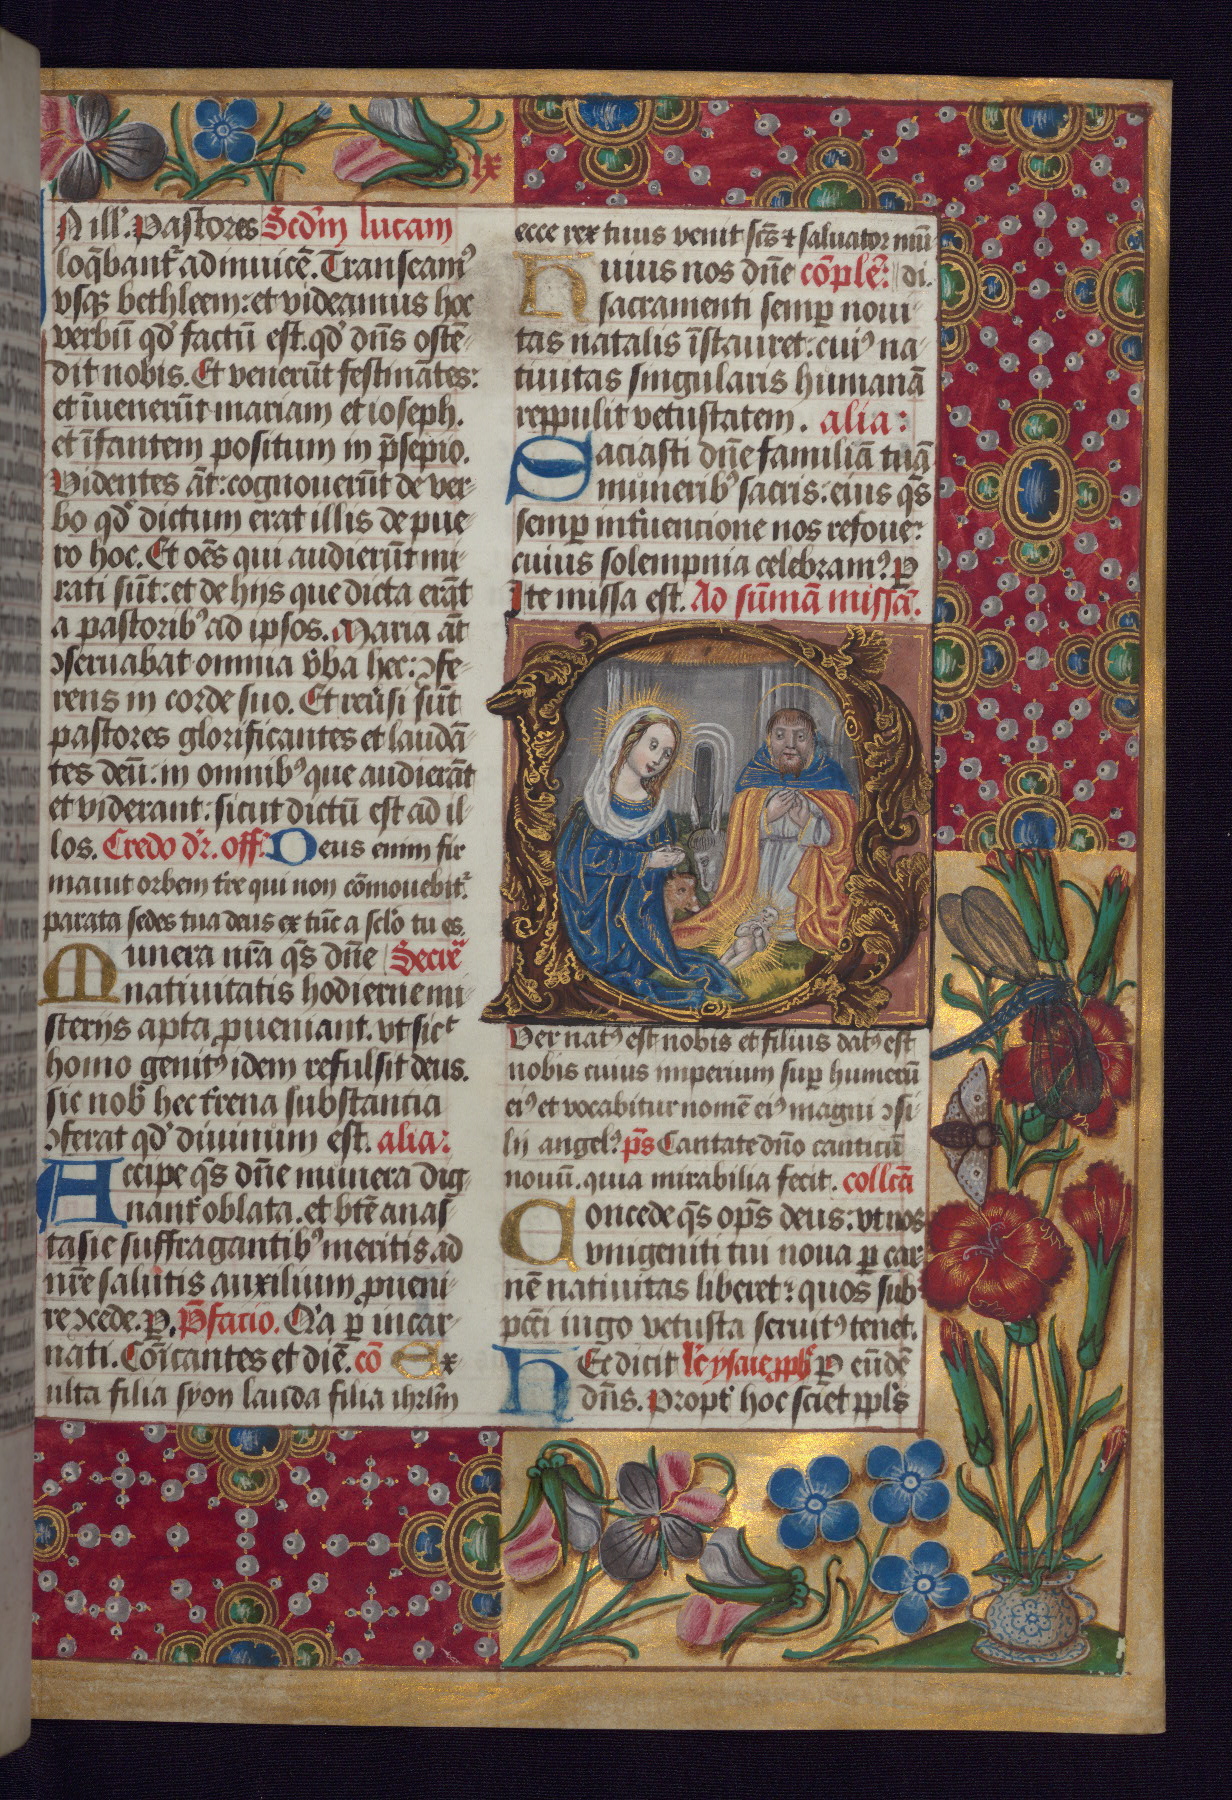 ix
N ill'. Pastores Scd'm lucam
loq̄bant᷑ ad inuicē. Transeam᷒
vsq̄ꝫ bethleem: et videamus hoc
verbū qd' factū est. qd' dn̄s ostē-
dit nobis. Et venerūt festināntes:
et īuenerūt mariam et ioseph.
et īfantem positum in p̄sepio.
Videntes āt: cognouerūt de ver-
bo qd' dictum erat illis de pue-
ro hoc. Et oēs qui audierūt mi-
rati sūt: et de hijs que dicta erāt
a pastorib᷒ ad ipsos. Maria āt
ↄseruabat omnia v̄ba hec: ↄfe-
rens in corde suo. Et reu͛si sūt
pastores glorificantes et laudā-
tes deū: in omnib᷒ que audierāt
et viderant: sicut dictū est ad il-
los. Credo dr̄. off̄. Deus enim fir
mauit orbem tr̄e qui non cōmouebit᷑.
parata sedes tua deus ex tūc a sc̄lo tu es.
Munera nr̄a q̄s dn̄e Secre
natiuitatis hodierne mi-
sterijs apta ꝓueniant. vt sic᷑
homo genit᷒ idem refulsit deus.
sic nob̄ hec tr͛rena substantia
ↄferat qd' diuinum est. alia:
Accipe q̄s dn̄e munera dig-
nant᷑ oblata. et btē anas-
tasie suffragantib᷒ meritis ad
nr̄e salutis auxilium ꝓueni-
re ↄcede. ꝑ. P̄facio. Q'a ꝑ incar-
nati. Cōicantes et diē. cō Ex-
ulta filia syon lauda filia ihrlm̄
ecce rex tuus venit sc̄s ⁊ saluator mū-
Huius nos dn̄e cōplē: di.
sacramenti semꝑ noui-
tas natalis īstauret: cui᷒ na-
tiuitas singularis humanā
reppulit vetustatem. alia:
Saciasti dn̄e familiā tuā
munerib᷒ sacris: eius q̄s
semꝑ int͛uencione nos refoue:
cuius solempnia celebram᷒. ꝑ
Ite missa est. Ad sūmā missā.
Puer nat᷒ est nobis et filius dat᷒ est
nobis cuius imperium suꝑ humerū
ei᷒ et vocabitur nomē ei᷒ magni ↄsi-
lij angel᷒. p̄s Cantate dn̄o canticū
nouū. quia mirabilia fecit. collcā
Concede q̄s op̄s deus: vt nos
vnigeniti tui noua ꝑ car
nē natiuitas liberet: quos sub
pcc̄i iugo vetusta seruit᷒ tenet.
Hec dicit lc̄ ysaie ꝓph̄ ꝑ eūdē
dn̄s. Propt͛ hoc sciet ppl's